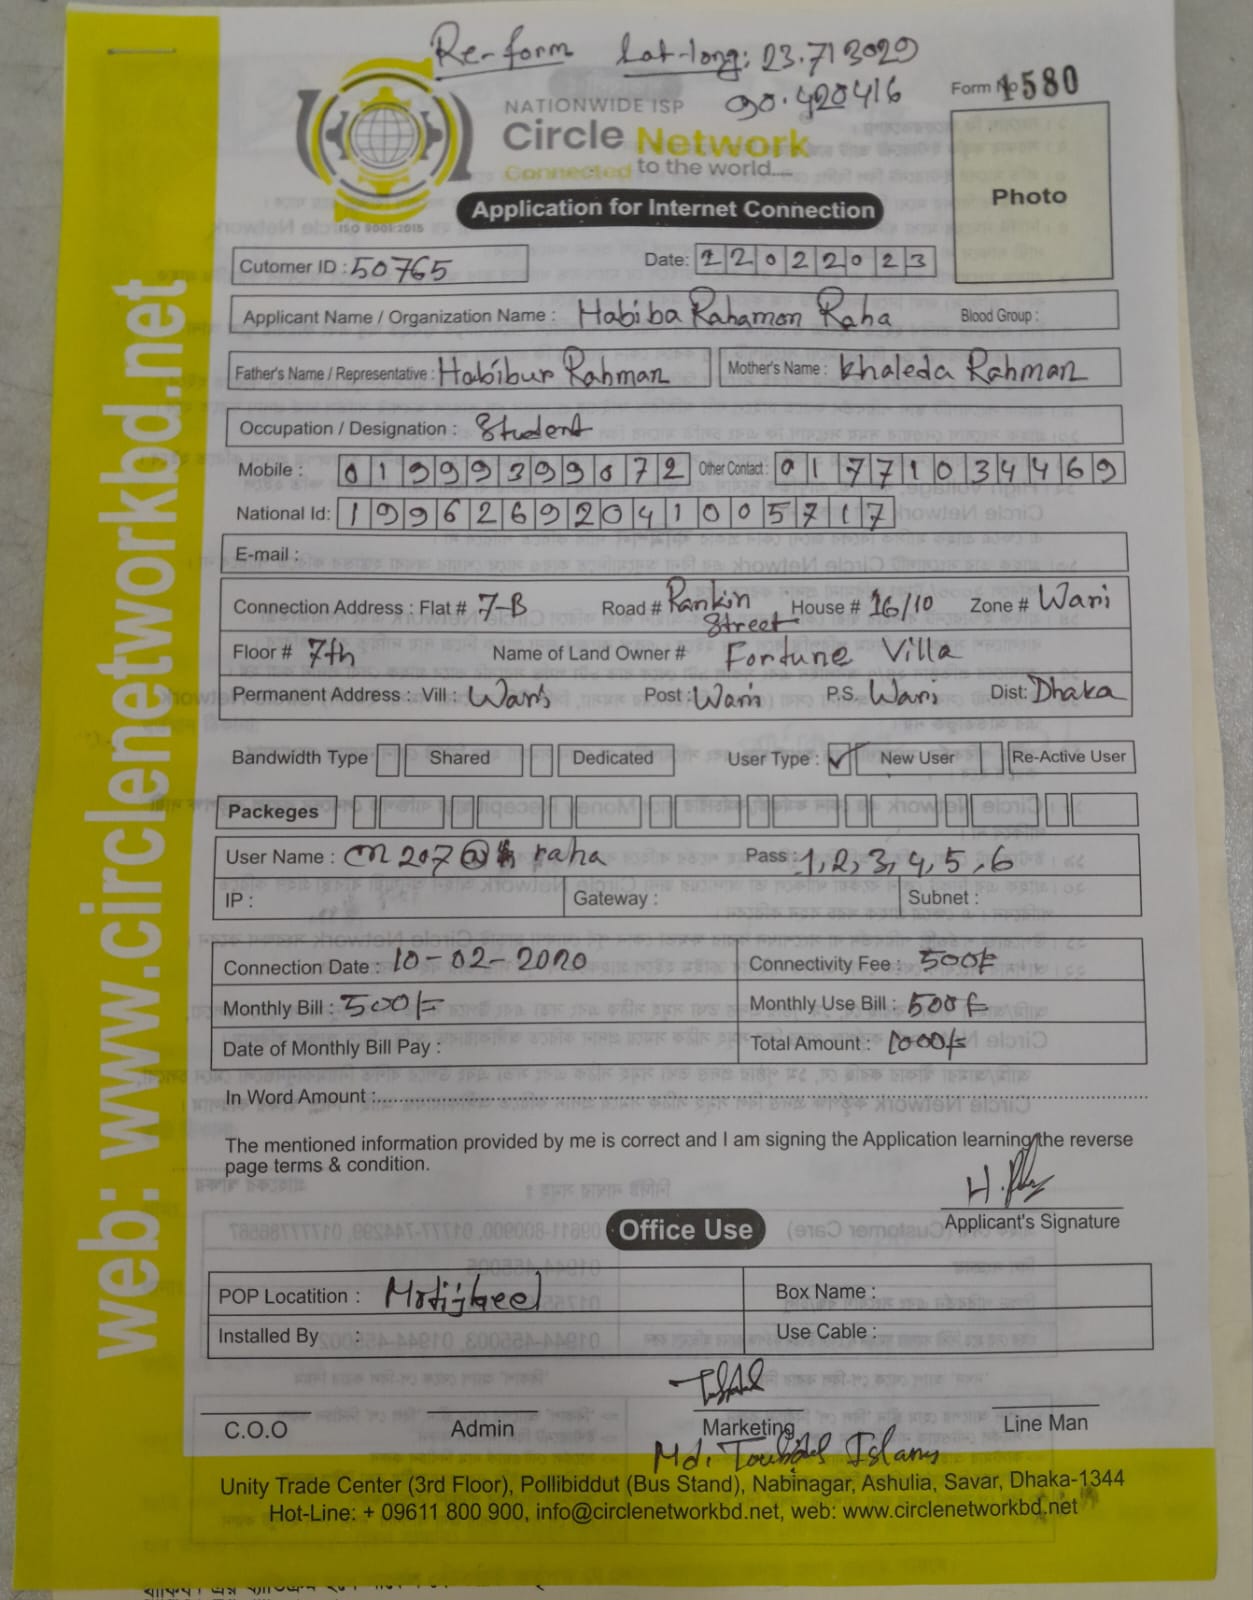 Re-form Lat-long: 23.713029
90.420416
Form No 1580
NATIONWIDE ISP
Circle Network
Connected to the world....
ISO 9001:2015
Photo
Application for Internet Connection
Cutomer ID : 50765 Date: 22022023
Applicant Name / Organization Name : Habiba Rahamon Raha Blood Group :
Father's Name / Representative : Habibur Rahman Mother's Name : Khaleda Rahman
Occupation / Designation : Student
Mobile : 01999399072 Other Contact : 01771034469
National Id: 19962692041005717
E-mail :
Connection Address : Flat # 7-B Road # Rankin Street House # 16/10 Zone # Wari
Floor # 7th Name of Land Owner # Fortune Villa
Permanent Address : Vill : Wari Post : Wari P.S. Wari Dist: Dhaka
Bandwidth Type Shared Dedicated User Type : ✓ New User Re-Active User
Packeges
User Name : cn207@ raha Pass : 1,2,3,4,5,6
IP : Gateway : Subnet :
Connection Date : 10-02-2020 Connectivity Fee : 500/=
Monthly Bill : 500/= Monthly Use Bill : 500/=
Date of Monthly Bill Pay : Total Amount : 1000/=
In Word Amount :
The mentioned information provided by me is correct and I am signing the Application learning the reverse
page terms & condition.
Applicant's Signature
Office Use
POP Locatition : Motijheel Box Name :
Installed By : Use Cable :
C.O.O Admin Marketing Line Man
Md. Touhidul Islam
Unity Trade Center (3rd Floor), Pollibiddut (Bus Stand), Nabinagar, Ashulia, Savar, Dhaka-1344
Hot-Line: + 09611 800 900, info@circlenetworkbd.net, web: www.circlenetworkbd.net
web: www.circlenetworkbd.net